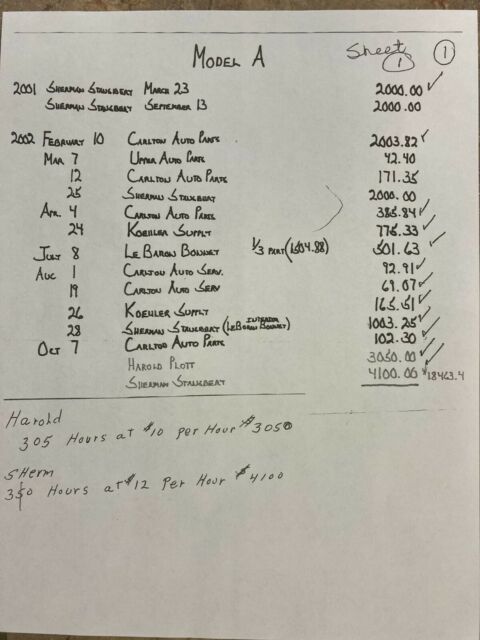 Model A Sheet 1 1
2001 Sherman Stalkbert March 23 2000.00 ✓
Sherman Stalkbert September 13 2000.00
2002 February 10 Carlton Auto Parts 2003.82 ✓
Mar 7 Upper Auto Parts 42.40
12 Carlton Auto Parts 171.35
25 Sherman Stalkbert 2000.00
Apr. 4 Carlton Auto Parts 385.84 ✓
24 Koehler Supply 776.33 ✓
July 8 LeBaron Bonney 1/3 part (1504.88) 501.63 ✓
Aug 1 Carlton Auto Serv. 92.91 ✓
19 Carlton Auto Serv 69.07 ✓
26 Koehler Supply 165.51 ✓
28 Sherman Stalkbert (LeBoran Bonney) Interior 1003.25 ✓
Oct 7 Carlton Auto Parts 102.30 ✓
Harold Plott 3050.00 ✓
Sherman Stalkbert 4100.00 18463.4
Harold
305 Hours at $10 Per Hour $3050
Sherm
350 Hours at $12 Per Hour $4100